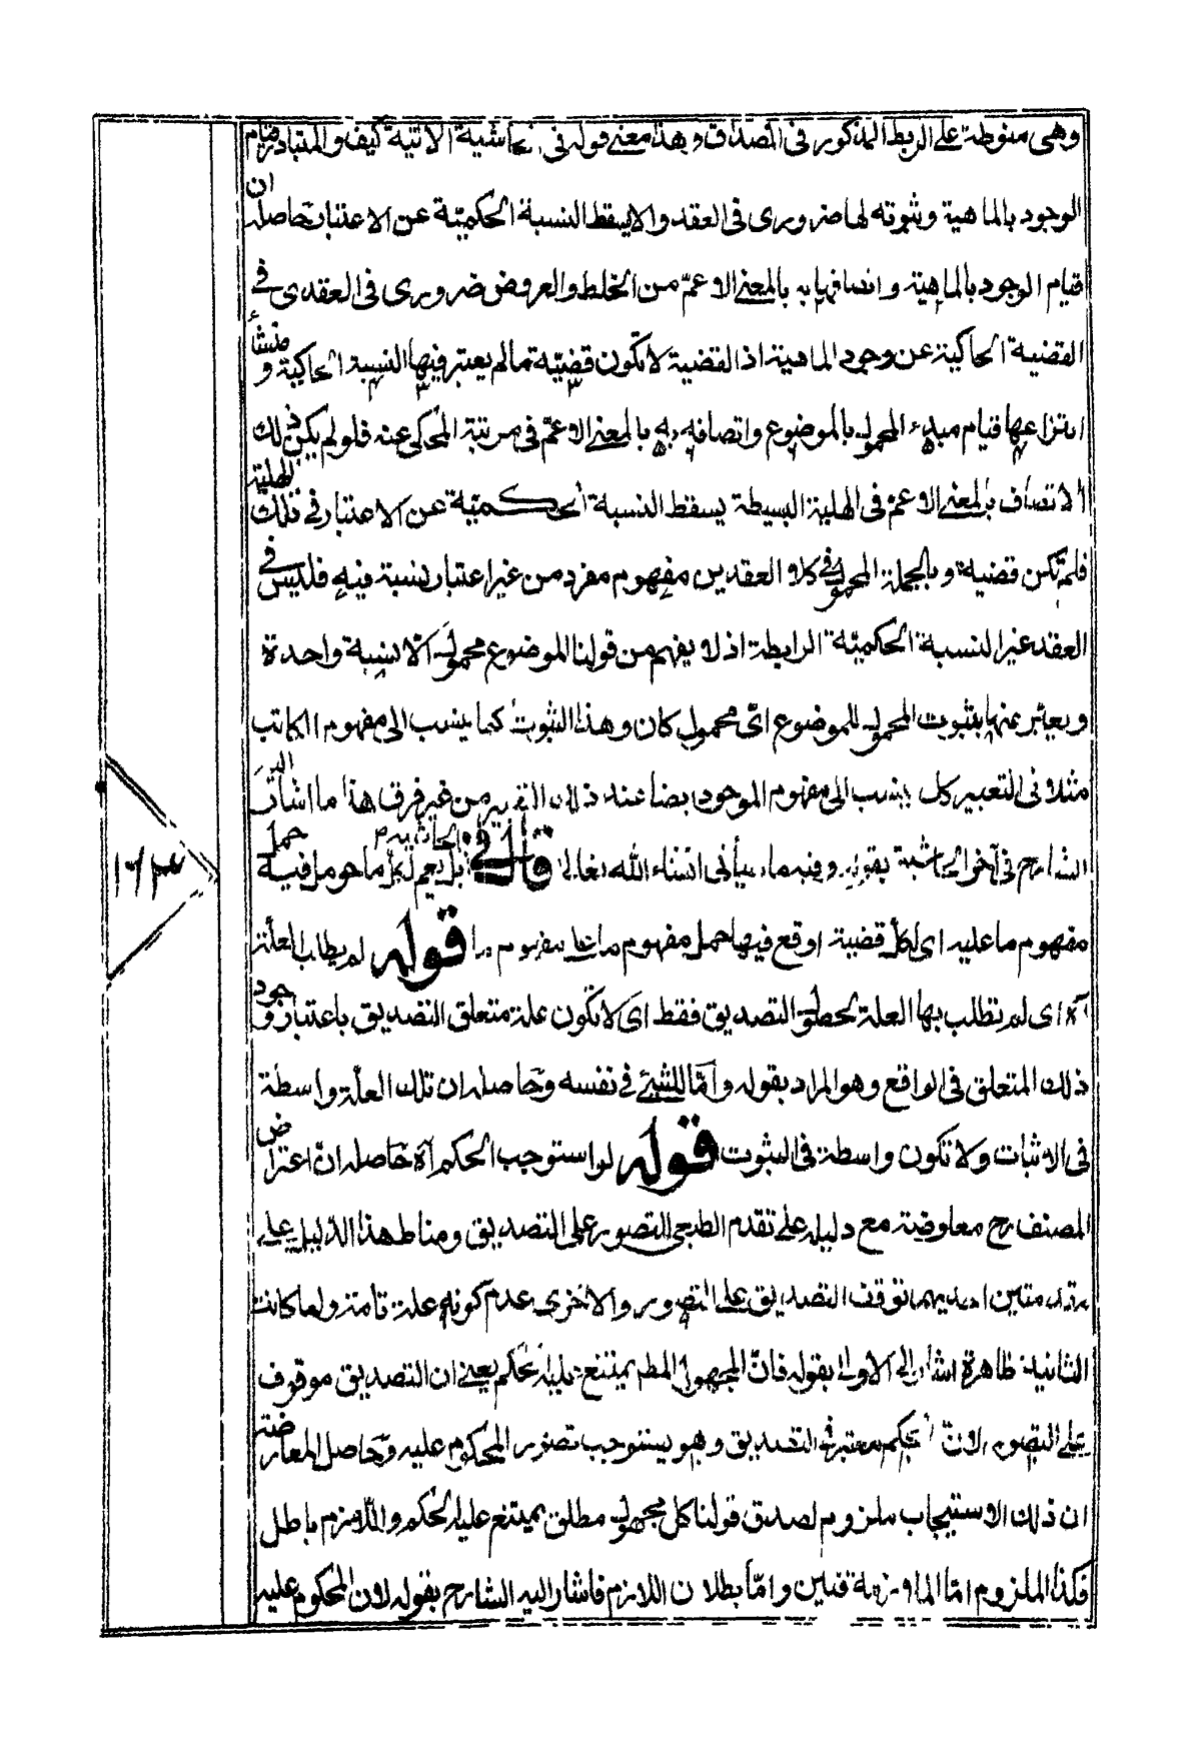 وهى منوطة على الربط المذكور فى المصداق وهذا معنى قوله فى الحاشية الاتية كيف والمتبادر قيام
الوجود بالماهية وثبوته لها ضرورى فى العقد والا يسقط النسبة الحكمية عن الاعتبار حاصله ان
قيام الوجود بالماهية واتصافها به بالمعنى الاعمّ من الخلط والعروض ضرورى فى العقد ى فى
القضية الحاكية عن وجود الماهية اذ القضية لا تكون قضيّة ما لم يعتبر فيها النسبة الحاكية ومنشأ
انتزاعها قيام مبدء المحمول بالموضوع واتصافه به بالمعنى الاعمّ فى مرتبة المحكى عنه فلو لم يكن ذلك
الاتصاف بالمعنى الاعمّ فى الهلية البسيطة يسقط النسبة الحكميّة عن الاعتبار فى تلك الهلية
فلم تكن قضية وبالجملة المحمول فى كلا العقدين مفهوم مفرد من غير اعتبار نسبة فيه فليس فى
العقد غير النسبة الحكميّة الرابطة اذ لا يفهم من قولنا الموضوع محمول الّا نسبة واحدة
ويعبّر عنها بثبوت المحمول للموضوع اىّ محمول كان وهذا الثبوت كما ينسب الى مفهوم الكاتب
مثلا فى التعبير كل ينسب الى مفهوم الموجود ايضا عند ذلك التعبير من غير فرق هذا ما اشار اليه
الشارح فى آخر الحاشية بقوله وفيه ما سيأتى انشاء الله تعالى قال فى الحاشية بل يعم لكل ما هو مل فيه حمل
مفهوم ما عليه اى لكلّ قضية اوقع فيها حمل مفهوم ما على مفهوم ما قوله لم يطلب العلّة
آه اى لم تطلب بها العلة لمطلق التصديق فقط اى لا تكون علة متعلق التصديق باعتبار وجود
ذلك المتعلق فى الواقع وهو المراد بقوله وامّا للشيئ فى نفسه وحاصله ان تلك العلّة واسطة
فى الاثبات ولا تكون واسطة فى الثبوت قوله لو استوجب الحكم آه حاصله انّ اعتراض
المصنف رح معارضة مع دليله على تقدم الطبعى للتصور على التصديق ومناط هذا الدليل على
مقدمتين احديهما توقف التصديق على التصور والاخرى عدم كونه علة تامة ولما كانت
الثانية ظاهرة اشار الى الاولى بقوله فانّ المجهول المطم يمتنع عليه الحكم يعنى ان التصديق موقوف
على التصور لانّ الحكم معتبر فى التصديق وهو يستوجب تصور المحكوم عليه وحاصل المعارضة
ان ذلك الاستيجاب ملزوم لصدق قولنا كل مجهول مطلق يمتنع عليه الحكم واللازم باطل
فكذا الملزوم امّا الملازمة فبيّن وامّا بطلان اللازم فاشار اليه الشارح بقوله لان المحكوم عليه